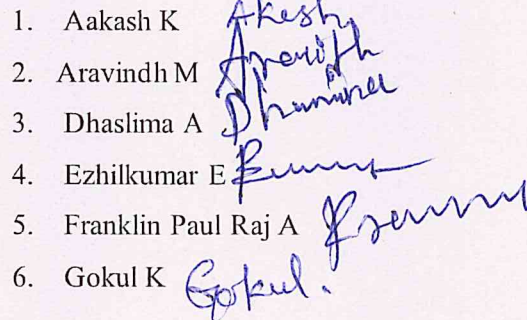 1. Aakash K Akash
2. Aravindh M Aravith
3. Dhaslima A
4. Ezhilkumar E
5. Franklin Paul Raj A
6. Gokul K Gokul.